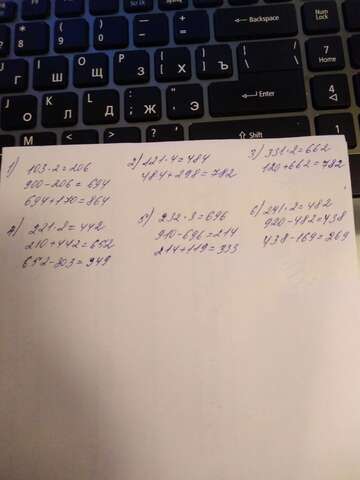 Backspace
Num
Lock
Scr Lk
8
(
9
)
0
-
+
=
\
7
Home
Г
І
Ш
O
Щ
P
З
{
[
Х
}
]
Ъ
Enter
4
О
Л
Д
Ж
Э
Shift
1
1) 103·2=206
900-206=694
694+170=864
2) 121·4=484
484+298=782
3) 331·2=662
120+662=782
4) 221·2=442
210+442=652
652-303=349
5) 232·3=696
910-696=214
214+119=333
6) 241·2=482
920-482=438
438-169=269